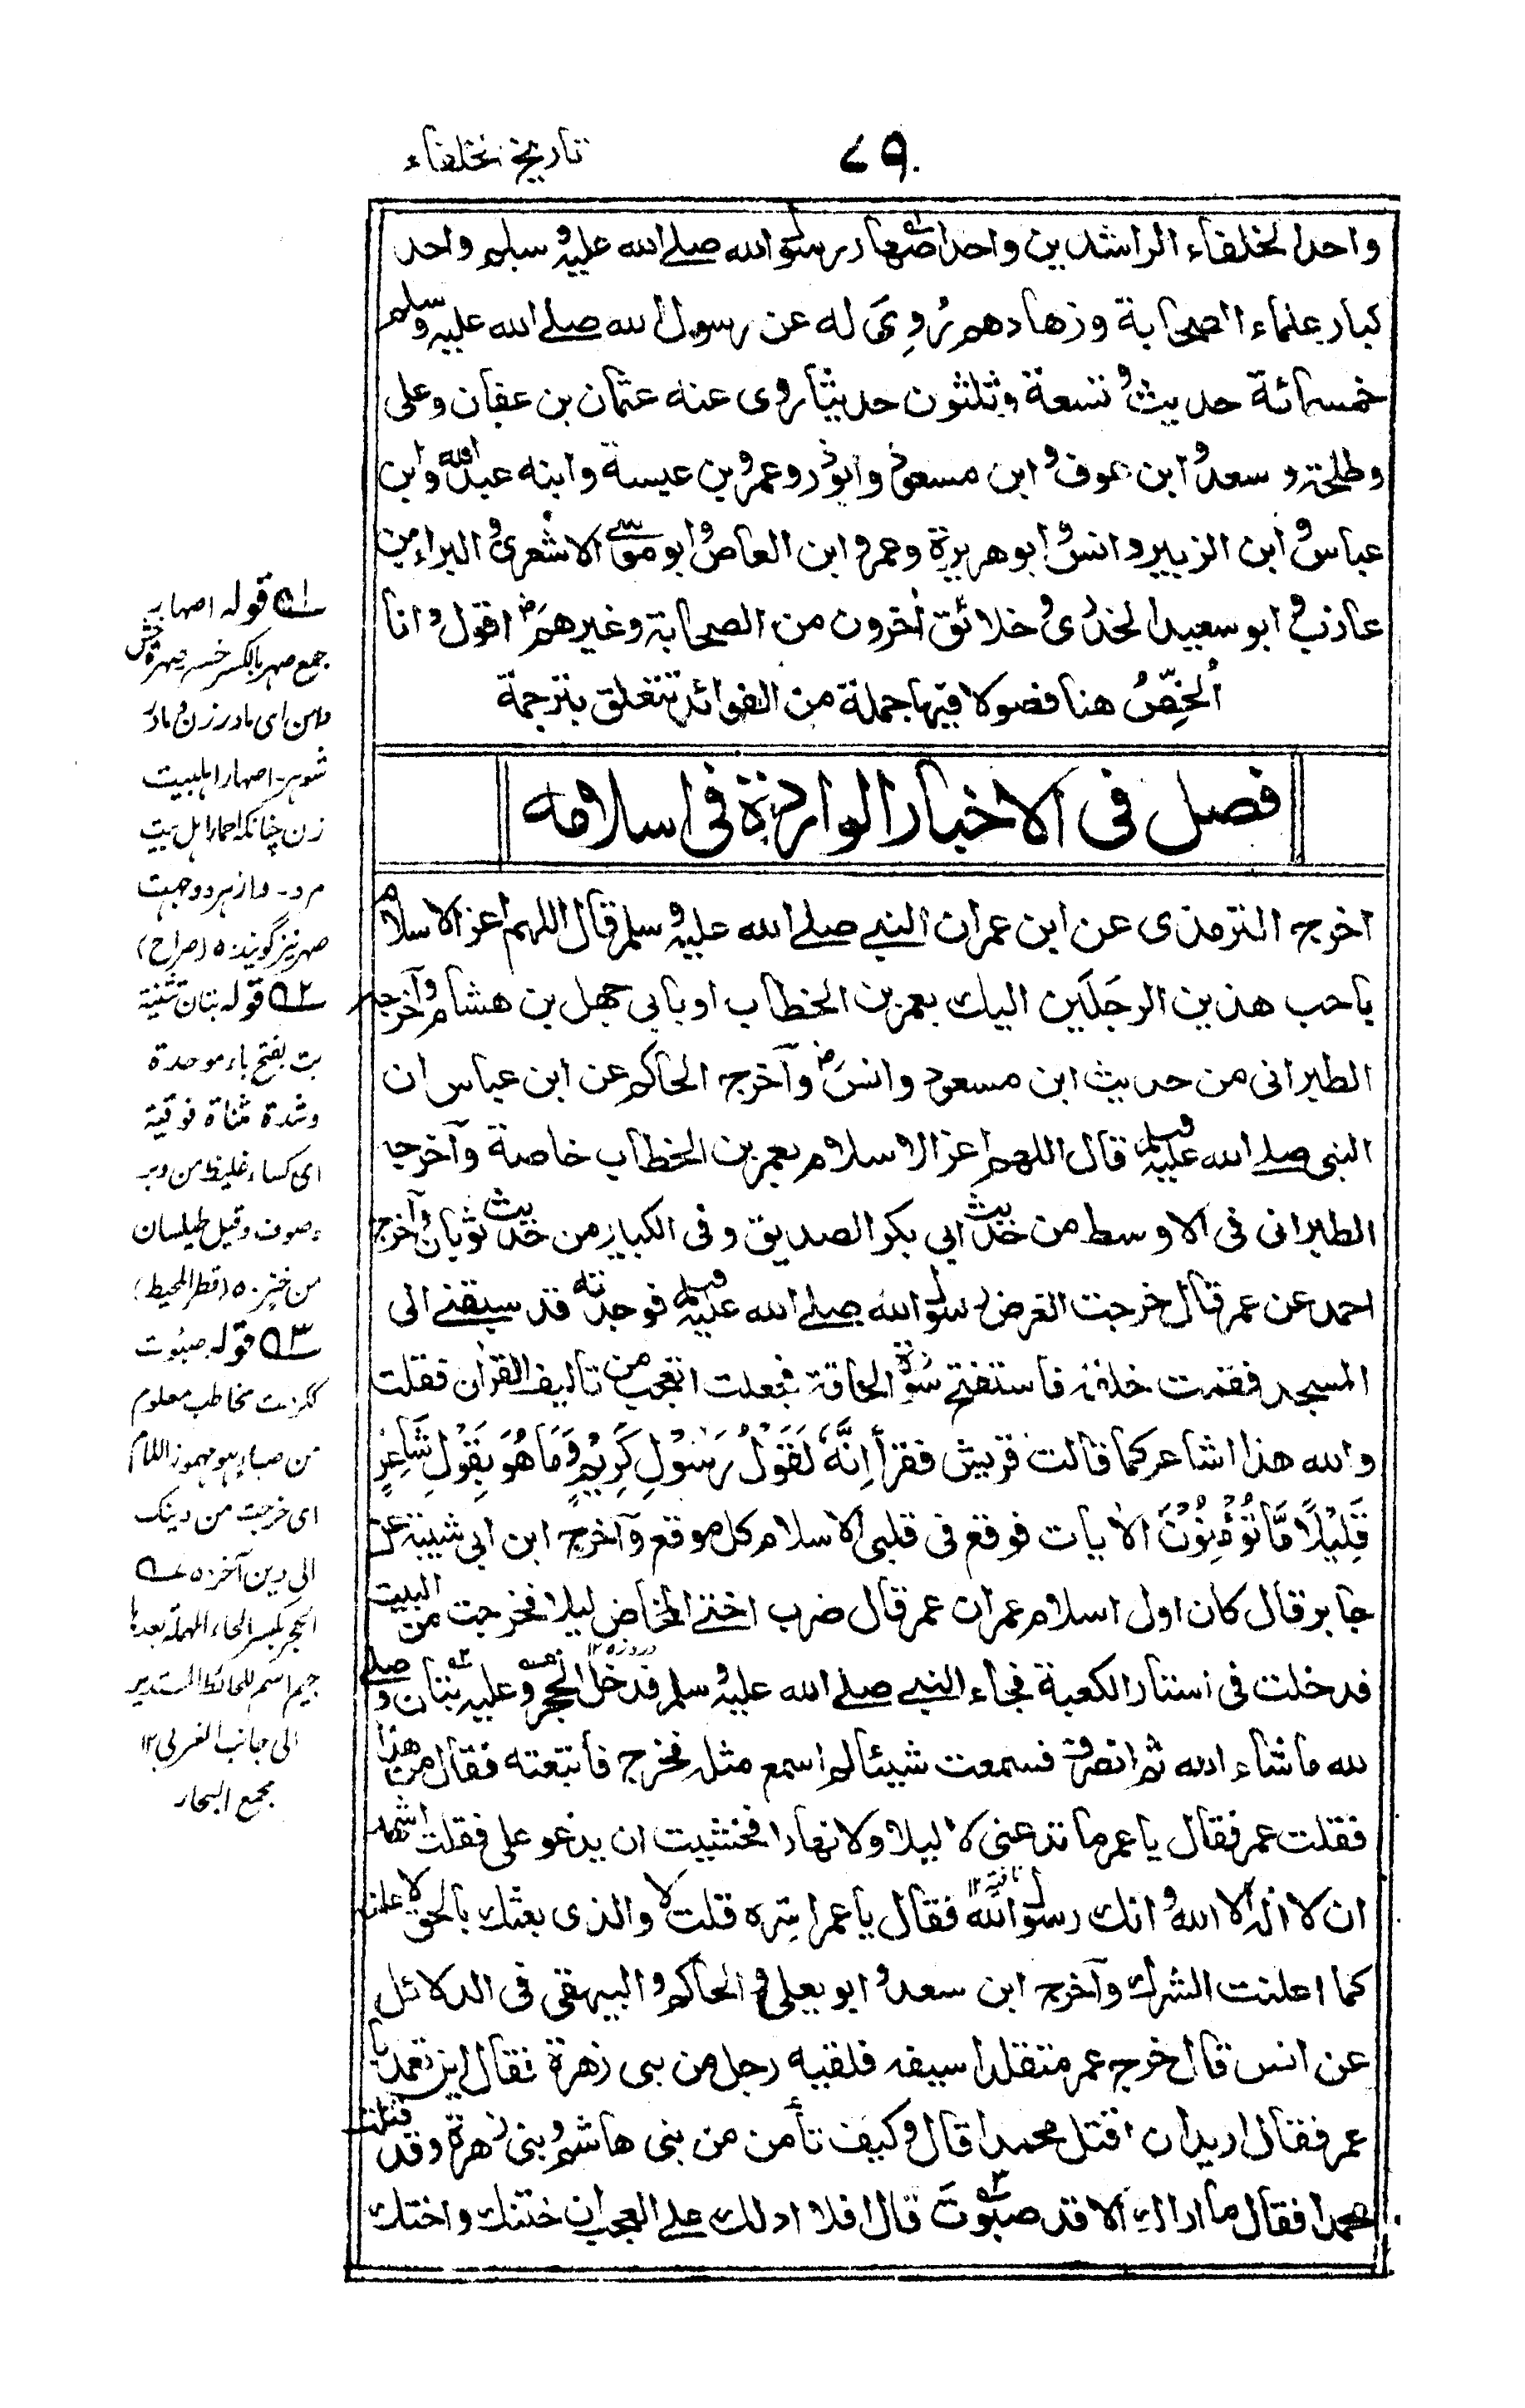 ٧٩
تاريخ الخلفاء
واحد الخلفاء الراشدين واحد اصهار رسول الله صلے الله عليه وسلم واحد
كبار علماء الصحابة وزهادهم رُوِىَ له عن رسول الله صلے الله عليه وسلم
خمسمائة حديث وتسعة وثلثون حديثا روى عنه عثمان بن عفان وعلى
وطلحة وسعد وابن عوف وابن مسعود وابوذر وعمرو بن عبسة وابنه عبدالله وابن
عباس وابن الزبير وانس وابو هريرة وعمرو ابن العاص وابو موسے الاشعرى والبراء بن
عازب وابو سعيد الخدرى وخلائق اٰخرون من الصحابة وغيرهم رض اقول وانا
اُلخِّصُ هنا فصولا فيها جملة من الفوائد تتعلق بترجمة
فصل فى الاخبار الواردة فى اسلامه
اخرج الترمذى عن ابن عمر ان النبے صلے الله عليه وسلم قال اللهم اعز الاسلام
باحب هذين الرجلَين اليك بعمر بن الخطاب او بابي جهل بن هشام وآخرجه
الطبرانى من حديث ابن مسعود وانس رض وآخرج الحاكم عن ابن عباس ان
النبى صلے الله عليه وسلم قال اللهم اعز الاسلام بعمر بن الخطاب خاصة وآخرجه
الطبرانى فى الاوسط من حديث ابي بكر الصديق وفى الكبير من حديث ثوبان وآخرج
احمد عن عمر قال خرجت اتعرض رسول الله صلے الله عليه وسلم فوجدته قد سبقنے الى
المسجد فقمت خلفه فاستفتح سورة الحاقة فجعلت اتعجب من تاليف القرٰان فقلت
والله هذا شاعر كما قالت قريش فقرأ اِنَّهٗ لَقَوْلُ رَسُوْلٍ كَرِيْمٍ وَّمَا هُوَ بِقَوْلِ شَاعِرٍ
قَلِيْلًا مَّا تُؤْمِنُوْنَ الاٰيات فوقع فى قلبى الاسلام كل موقع وآخرج ابن ابي شيبة عن
جابر قال كان اول اسلام عمر ان عمر قال ضرب اختے المخاض ليلا فخرجت من البيت
دردزه ١٢
فدخلت فى استار الكعبة فجاء النبے صلے الله عليه وسلم فدخل الحجر وعليه بتان وصلے
لله ما شاء الله ثم انصرف فسمعت شيئا لم اسمع مثله فخرج فاتبعته فقال من هذا
فقلت عمر فقال يا عمر ما تدعنى لا ليلا ولا نهارا فخشيت ان يدعو على فقلت اشهد
نافية ١٢
ان لا اله الا الله وانك رسول الله فقال يا عمر اسِتره قلت لا والذى بعثك بالحق لا علننه
كما اعلنت الشرك وآخرج ابن سعد وابو يعلى والحاكم والبيهقى فى الدلائل
عن انس قال خرج عمر متقلدا سيفه فلقيه رجل من بنى زهرة فقال اين تعمد يا
عمر فقال اريد ان اقتل محمدا قال وكيف تأمن من بنى هاشم وبنى زهرة وقد قتلت
محمدا فقال ما اراك الا قد صبوتَ قال افلا ادلك علے العجب ان ختنك واختك
ـ١ـه قوله اصهار
جمع صهر بالكسر خسر صهرة خش
دامن اى مادر زن و مادر
شوہر۔ اصهار اہلبيت
زن چنانكہ احما اہل بيت
مرد۔ و از ہر دو جہت
صهر نيز گويند ٥ (صراح)
ـ٢ـه قوله بتان تثنية
بت بفتح باء موحدة
وشدة مثناة فوقية
اى كساء غليظ من وبر
وصوف وقيل طيلسان
من خز ٥ (قطر المحيط)
ـ٣ـه قوله صبوت
ككرمت مخاطب معلوم
من صباء يہو مہموز اللام
اى خرجت من دينك
الى دين آخر ٥ ـ٤ـه
الحجر بكسر الحاء المهملة بعدها
جيم اسم للحائط المستدير
الى جانب الغربى ١٢
مجمع البحار